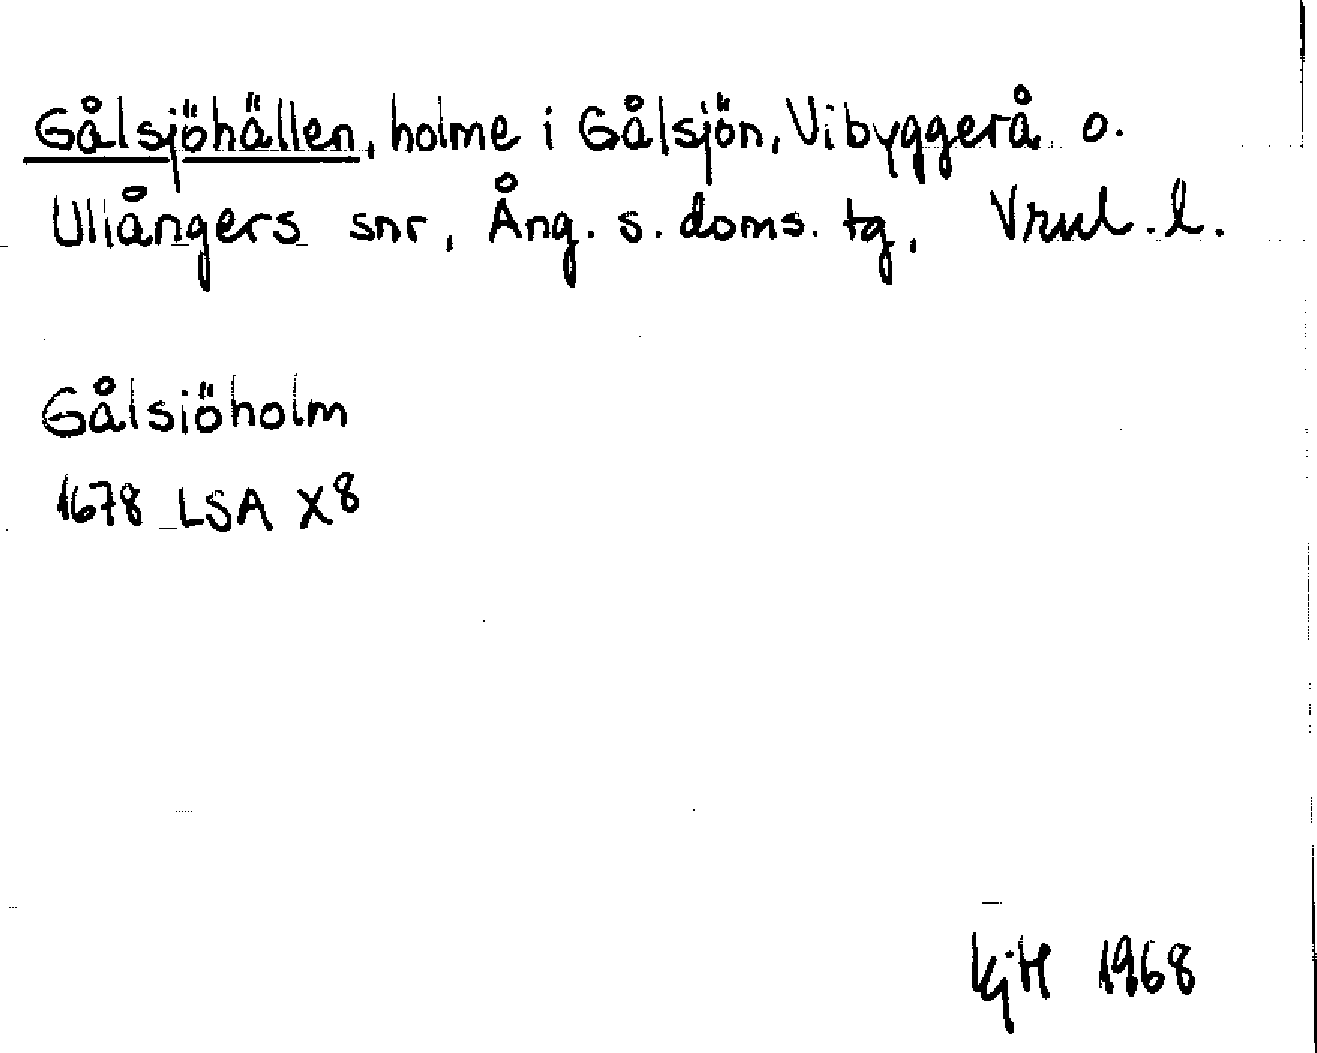 Gålsjöhällen, holme i Gålsjön, Vibyggerå o.
Ullångers snr, Ång. s. doms. tg, Vrnl. l.
Gålsiöholm
1678 LSA X8
KjH 1968